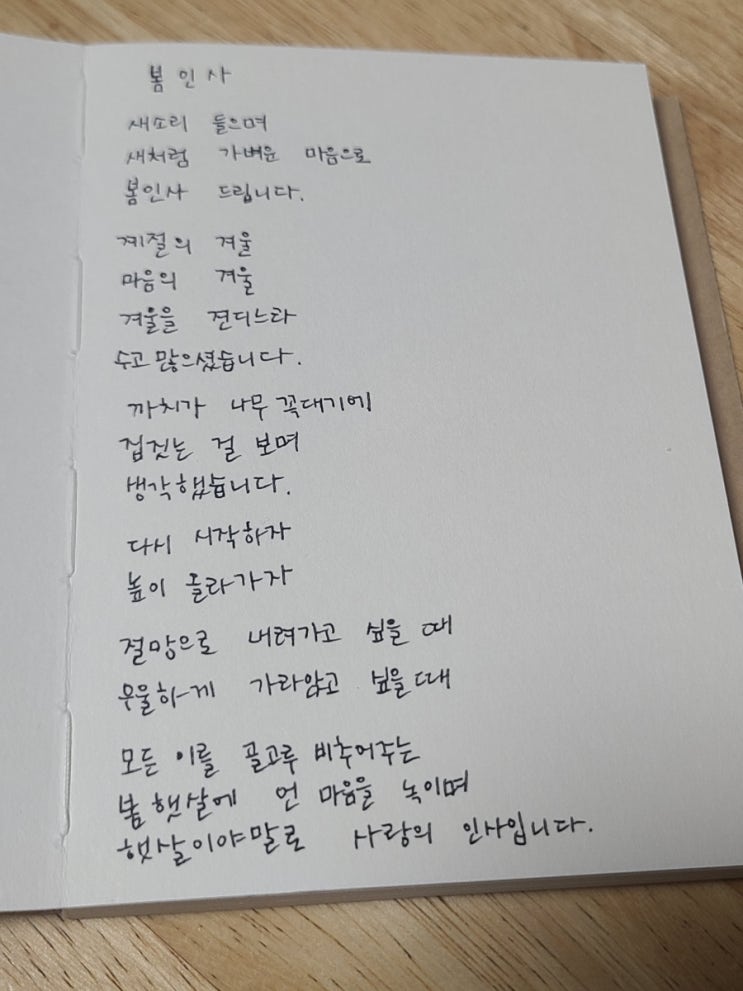 봄인사
새소리 들으며
새처럼 가벼운 마음으로
봄인사 드립니다.
계절의 겨울
마음의 겨울
겨울을 견디느라
수고 많으셨습니다.
까치가 나무 꼭대기에
집짓는 걸 보며
생각했습니다.
다시 시작하자
높이 올라가자
절망으로 내려가고 싶을 때
우울하게 가라앉고 싶을 때
모든 이를 골고루 비추어주는
봄 햇살에 언 마음을 녹이며
햇살이야말로 사랑의 인사입니다.